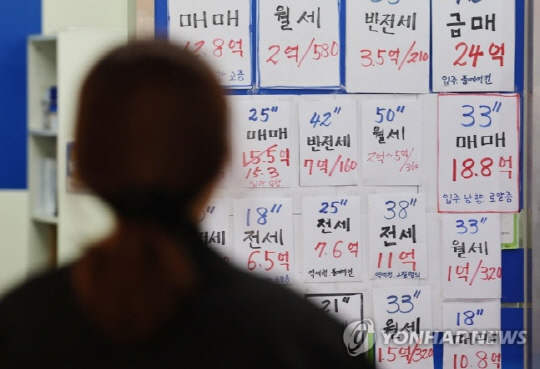 매매
12.8억
월세
2억/580
반전세
3.5억/210
급매
24억
25"
매매
15.5억
15.3
42"
반전세
7억/160
50"
월세
2억~5억/
33"
매매
18.8억
18"
전세
6.5억
25"
전세
7.6억
38"
전세
11억
33"
월세
1억/320
21"
33"
월세
1.5억/320
18"
매매
10.8억
YONHAPNEWS